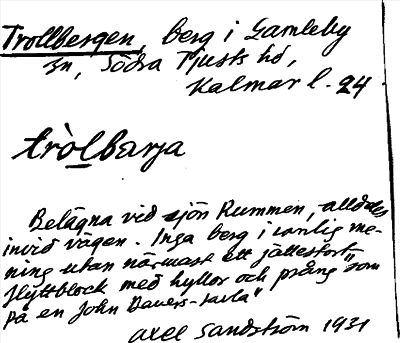 Trollbergen, berg i Gamleby
sn, Södra Tjusts hd,
Kalmar l. 24.
tròlbærja
Belägna vid sjön Rummen, alldeles
invid vägen. Inga berg i vanlig me-
ning utan närmast ett jättestort
flyttblock med hyllor och prång "som
på en John Bauers-tavla"
Axel Sandström 1931